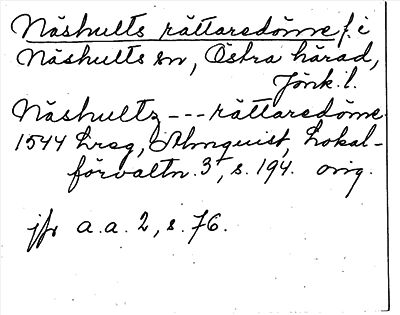 Näshults rättaredöme f. i
Näshults sn, Östra härad,
Jönk. l.
Näshultz --- rättaredöme
1544 hrsg, Almquist, Lokal-
förvaltn. 3, s. 194. orig.
jfr a.a. 2, s. 76.